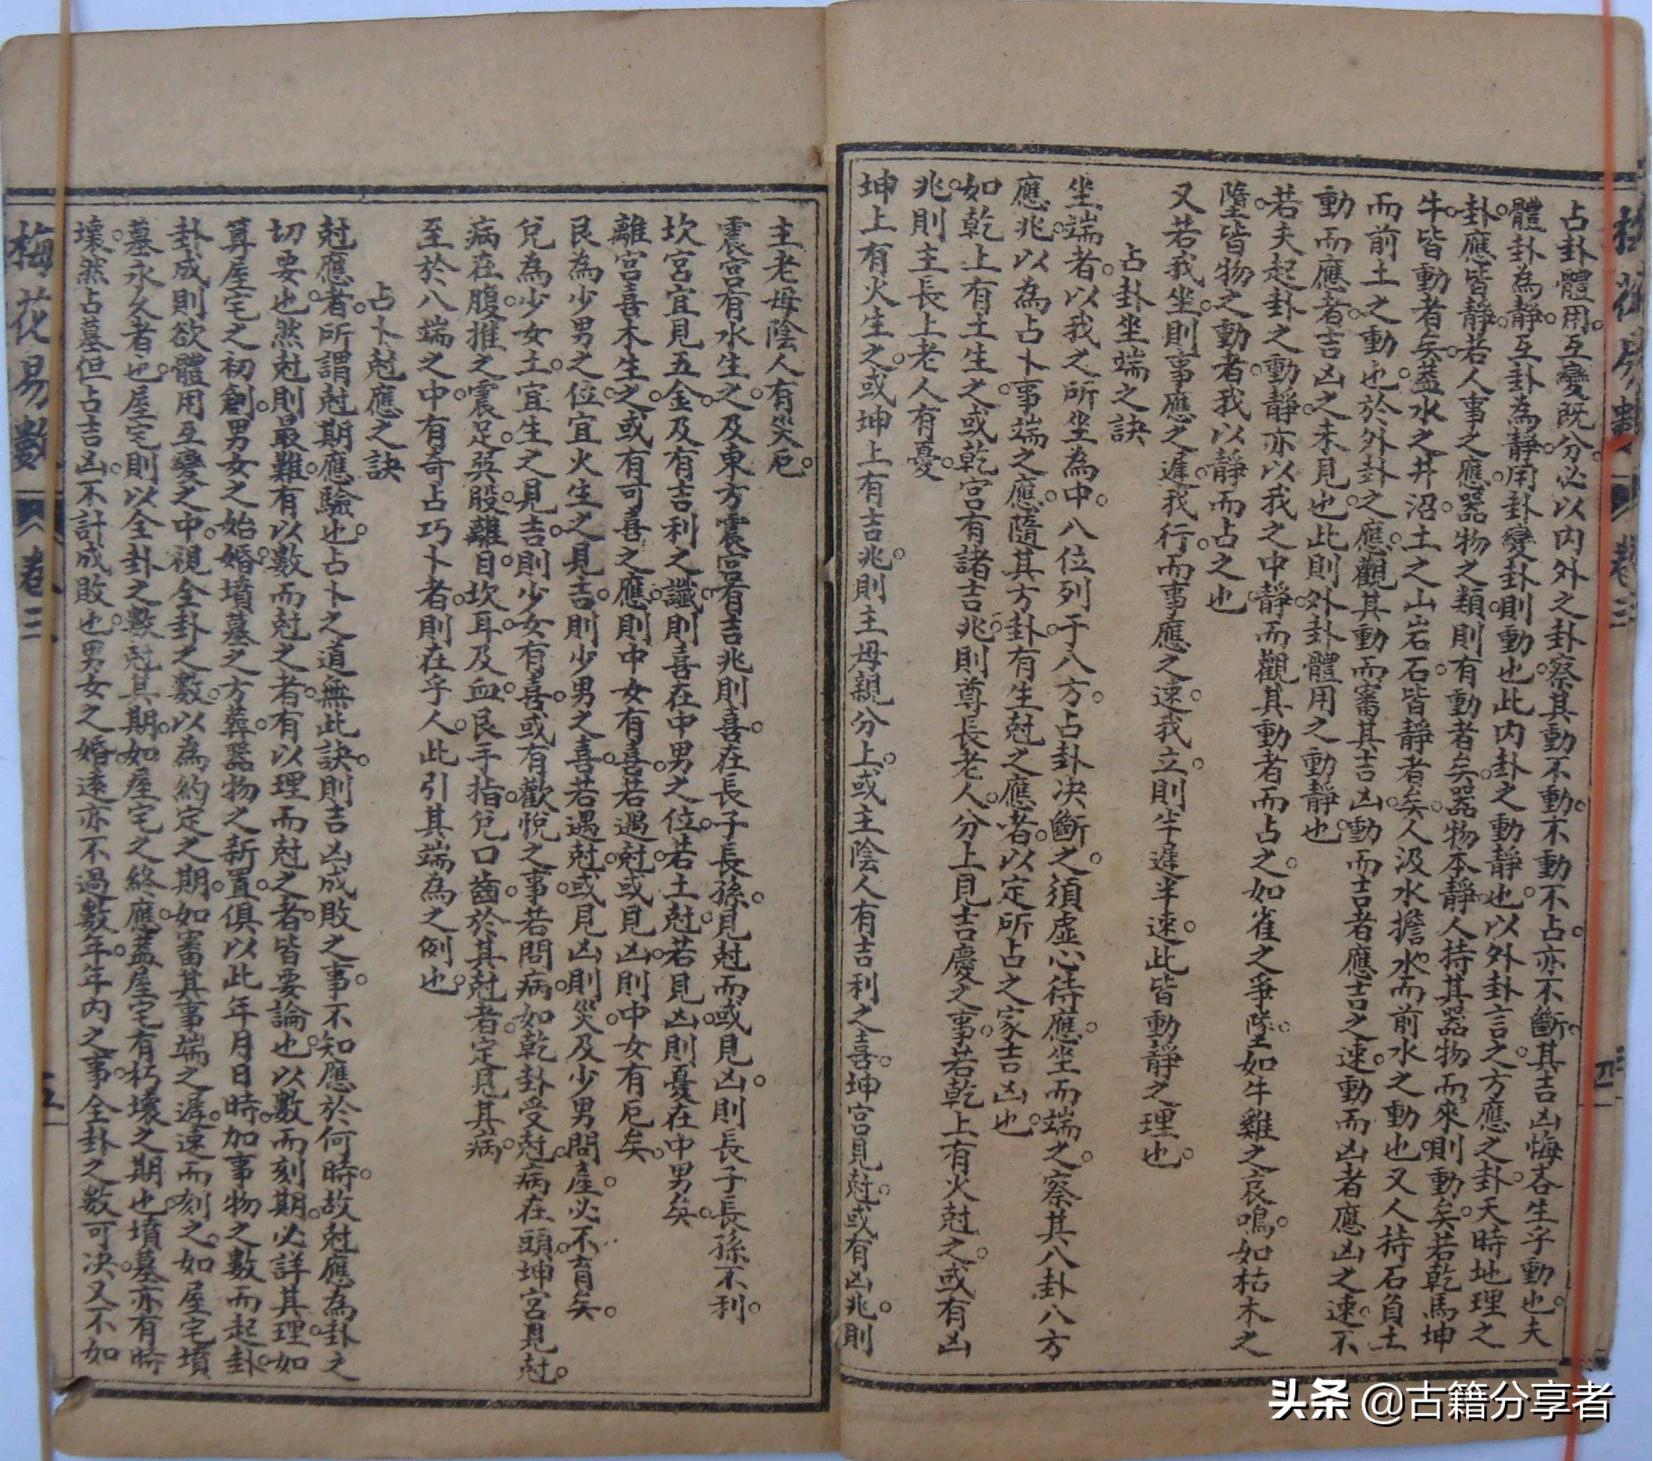 占卦體用互變既分必以内外之卦察其動不動不動不占亦不斷其吉凶悔吝生乎動也夫
體卦為靜互卦為靜用卦變卦則動也此内卦之動靜也以外卦言之方應之卦天時地理之
卦應皆靜若人事之應器物之類則有動者矣器物本靜人持其器物而來則動矣若乾馬坤
牛皆動者矣蓋水之井沼土之山岩石皆靜者矣人汲水擔水而前水之動也又人持石負土
而前土之動也於外卦之應觀其動而審其吉凶動而吉者應吉之速動而凶者應凶之速不
動而應者吉凶之未見也此則外卦體用之動靜也
若夫起卦之動靜亦以我之中靜而觀其動者而占之如雀之爭墜如牛雞之哀鳴如枯木之
墮皆物之動者我以靜而占之也
又若我坐則事應之遲我行而事應之速我立則半遲半速此皆動靜之理也
占卦坐端之訣
坐端者以我之所坐為中八位列于八方占卦决斷之須虛心待應坐而端之察其八卦八方
應兆以為占卜事端之應隨其方卦有生尅之應者以定所占之家吉凶也
如乾上有土生之或乾宮有諸吉兆則尊長老人分上見吉慶之事若乾上有火尅之或有凶
兆則主長上老人有憂
坤上有火生之或坤上有吉兆則主母親分上或主陰人有吉利之喜坤宮見尅或有凶兆則
主老母陰人有災厄
震宮有水生之及東方震宮有吉兆則喜在長子長孫見尅而或見凶則長子長孫不利
坎宮宜見五金及有吉利之讖則喜在中男之位若土尅若見凶則憂在中男矣
離宮喜木生之或有可喜之應則中女有喜若遇尅或見凶則中女有厄矣
艮為少男之位宜火生之見吉則少男之喜若遇尅或見凶則災及少男問產必不育矣
兌為少女土宜生之見吉則少女有喜或有歡悅之事若問病如乾卦受尅病在頭坤宮見尅
病在腹推之震足巽股離目坎耳及血艮手指兌口齒於其尅者定見其病
至於八端之中有奇占巧卜者則在乎人此引其端為之例也
占卜尅應之訣
尅應者所謂尅期應驗也占卜之道無此訣則吉凶成敗之事不知應於何時故尅應為卦之
切要也然尅則最難有以數而尅之者有以理而尅之者皆要論也以數而刻期必詳其理如
算屋宅之初創男女之始婚墳墓之方葬器物之新置俱以此年月日時加事物之數而起卦
卦成則欲體用互變之中視全卦之數以為約定之期如審其事端之遲速而刻之如屋宅墳
墓永久者也屋宅則以全卦之數尅其期如屋宅之終應蓋屋宅有朽壞之期也墳墓亦有時
壞然占墓但占吉凶不計成敗也男女之婚遠亦不過數年年内之事全卦之數可决又不如
梅花易數 卷三 五
头条 @古籍分享者